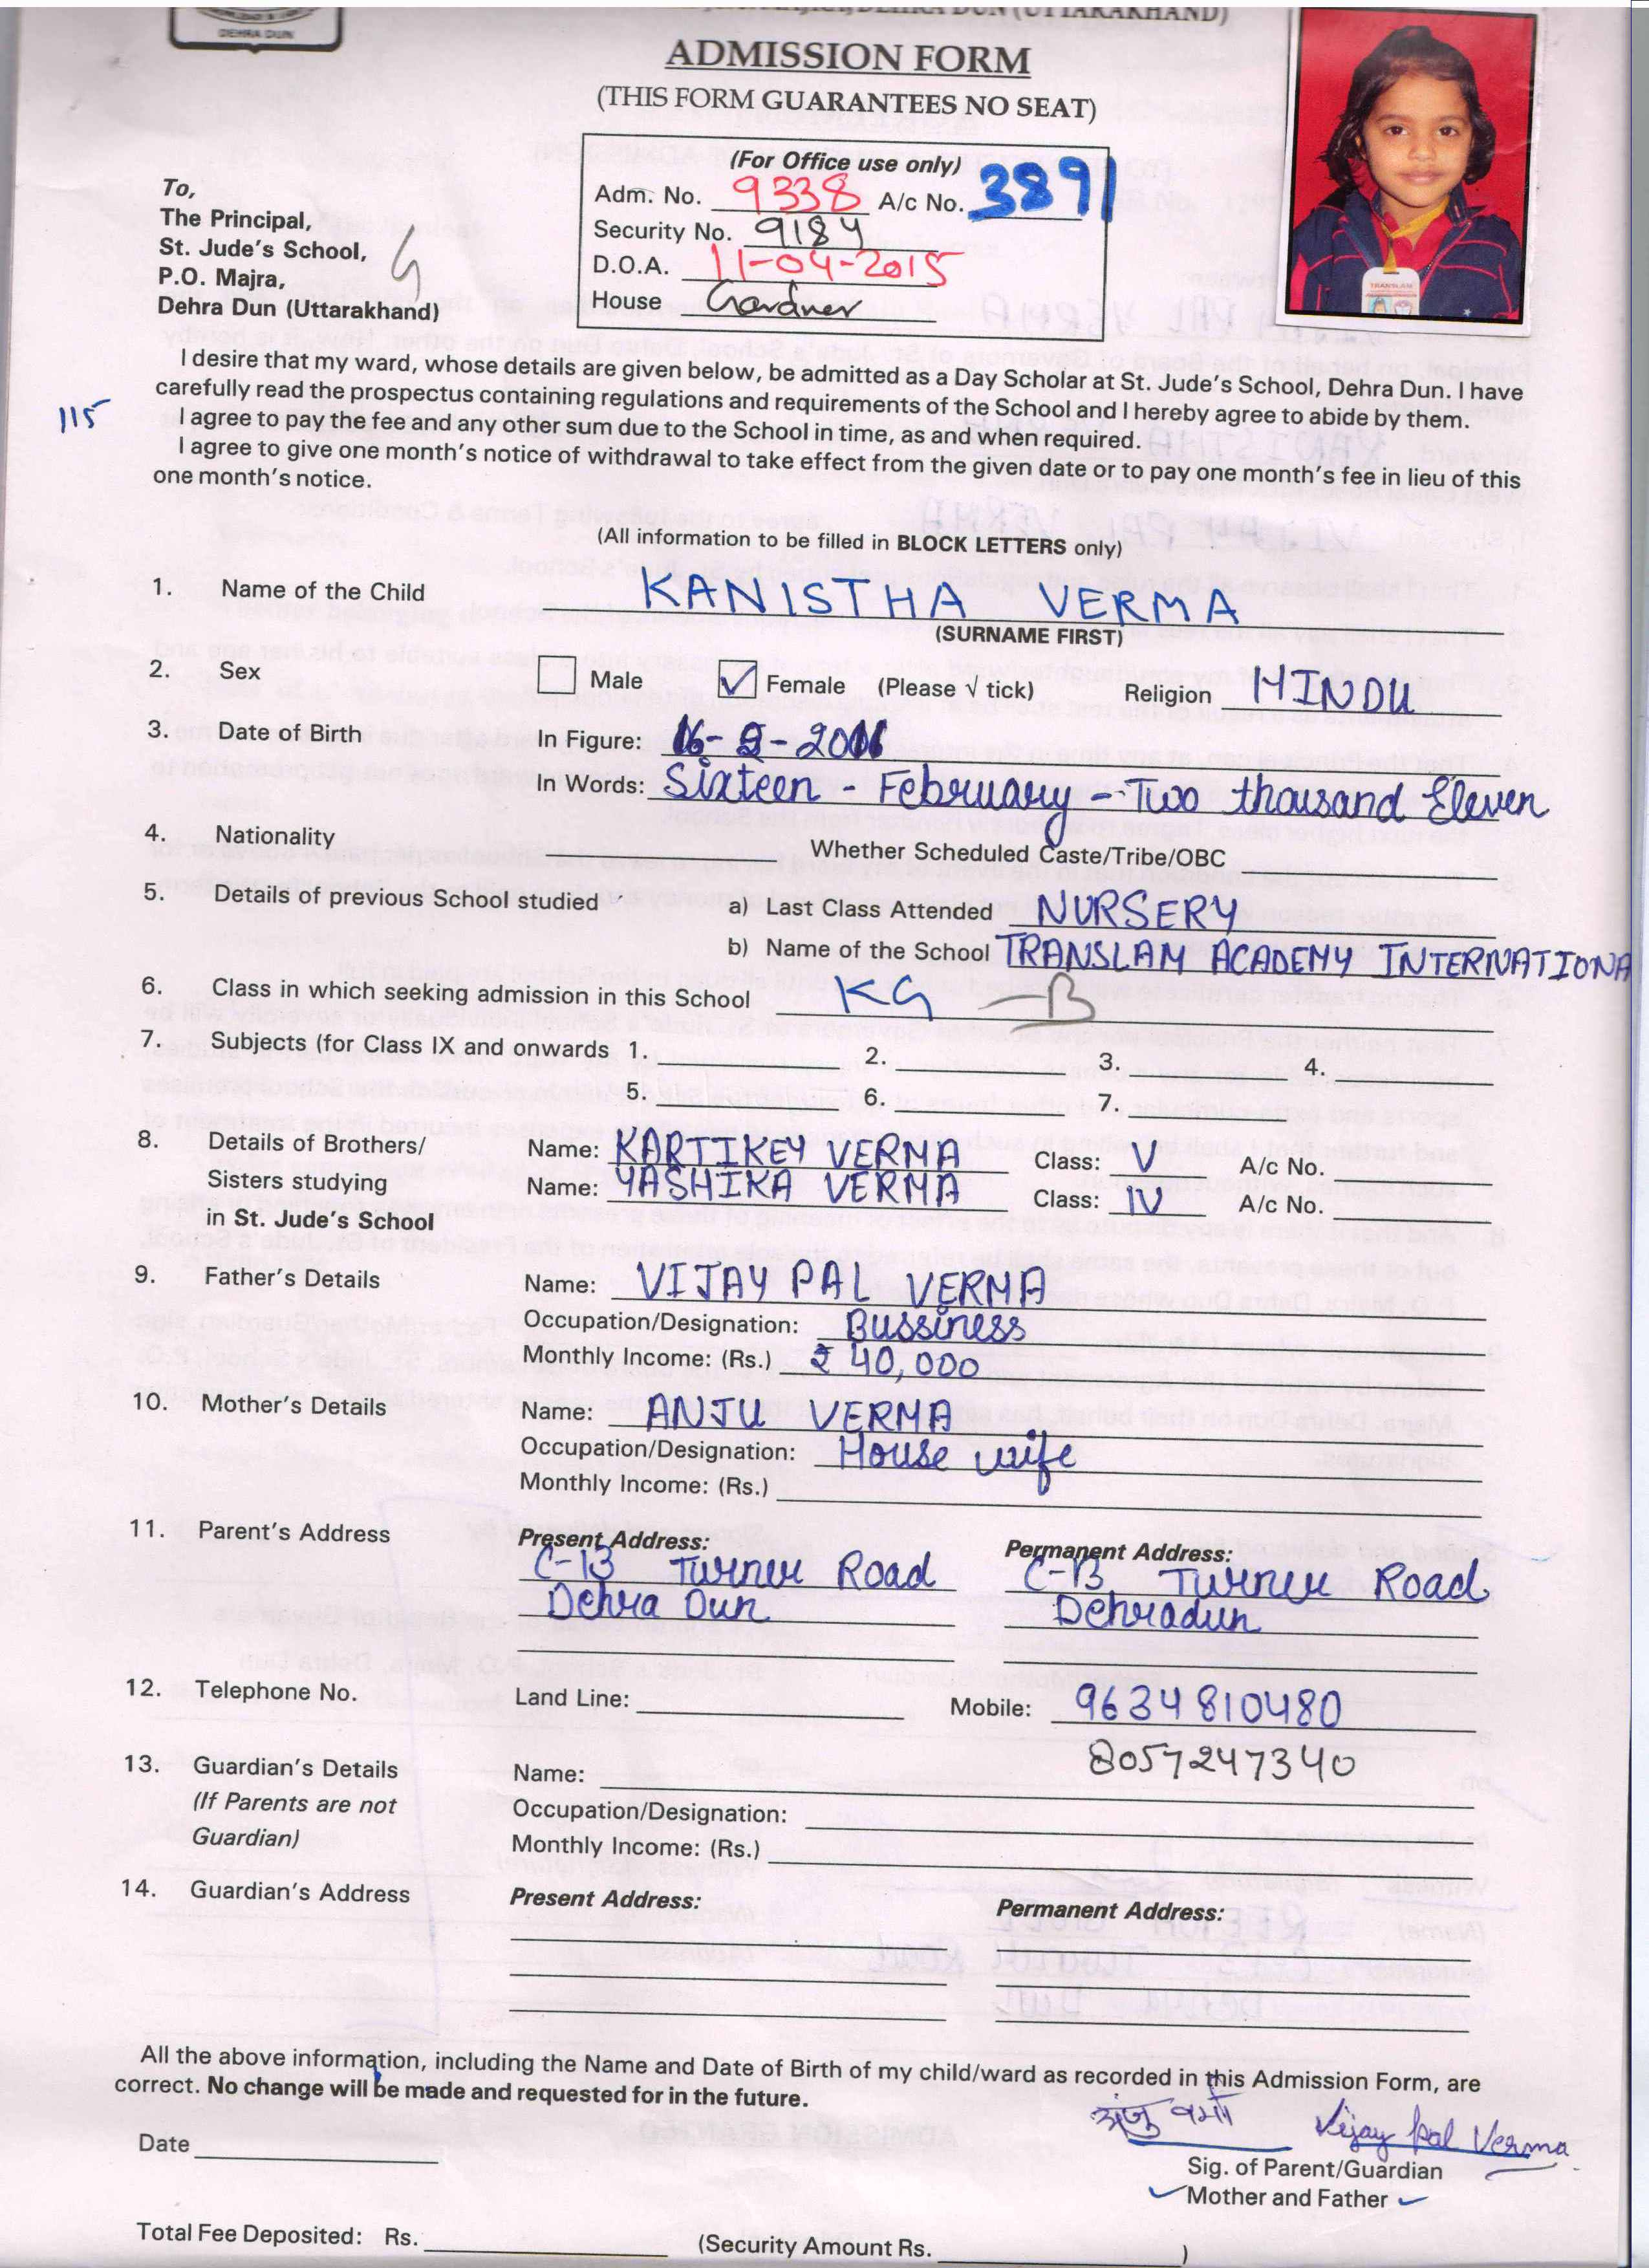 DEHRA DUN
DEHRA DUN (UTTARAKHAND)
ADMISSION FORM
(THIS FORM GUARANTEES NO SEAT)
(For Office use only)
Adm. No. 9338 A/c No. 3891
Security No. 9184
D.O.A. 11-04-2015
House Gardner
TRANSLAM
To,
The Principal,
St. Jude's School,
P.O. Majra,
Dehra Dun (Uttarakhand)
I desire that my ward, whose details are given below, be admitted as a Day Scholar at St. Jude's School, Dehra Dun. I have
carefully read the prospectus containing regulations and requirements of the School and I hereby agree to abide by them.
115
I agree to pay the fee and any other sum due to the School in time, as and when required.
I agree to give one month's notice of withdrawal to take effect from the given date or to pay one month's fee in lieu of this
one month's notice.
(All information to be filled in BLOCK LETTERS only)
1. Name of the Child KANISTHA VERMA
(SURNAME FIRST)
2. Sex Male Female (Please √ tick) Religion HINDU
3. Date of Birth In Figure: 16-2-2011
In Words: Sixteen - February - Two thousand Eleven
4. Nationality Whether Scheduled Caste/Tribe/OBC
5. Details of previous School studied a) Last Class Attended NURSERY
b) Name of the School TRANSLAM ACADEMY INTERNATIONA
6. Class in which seeking admission in this School KG - B
7. Subjects (for Class IX and onwards 1. 2. 3. 4.
5. 6. 7.
8. Details of Brothers/ Name: KARTIKEY VERMA Class: V A/c No.
Sisters studying Name: YASHIKA VERMA Class: IV A/c No.
in St. Jude's School
9. Father's Details Name: VIJAY PAL VERMA
Occupation/Designation: Bussiness
Monthly Income: (Rs.) ₹ 40,000
10. Mother's Details Name: ANJU VERMA
Occupation/Designation: House wife
Monthly Income: (Rs.)
11. Parent's Address Present Address: Permanent Address:
C-13 Turner Road C-13, Turner Road
Dehra Dun Dehradun
12. Telephone No. Land Line: Mobile: 9634810480
8057247340
13. Guardian's Details Name:
(If Parents are not Occupation/Designation:
Guardian) Monthly Income: (Rs.)
14. Guardian's Address Present Address: Permanent Address:
All the above information, including the Name and Date of Birth of my child/ward as recorded in this Admission Form, are
correct. No change will be made and requested for in the future.
अंजु वर्मा Vijay Pal Verma
Date
Sig. of Parent/Guardian
Mother and Father
Total Fee Deposited: Rs. (Security Amount Rs. )